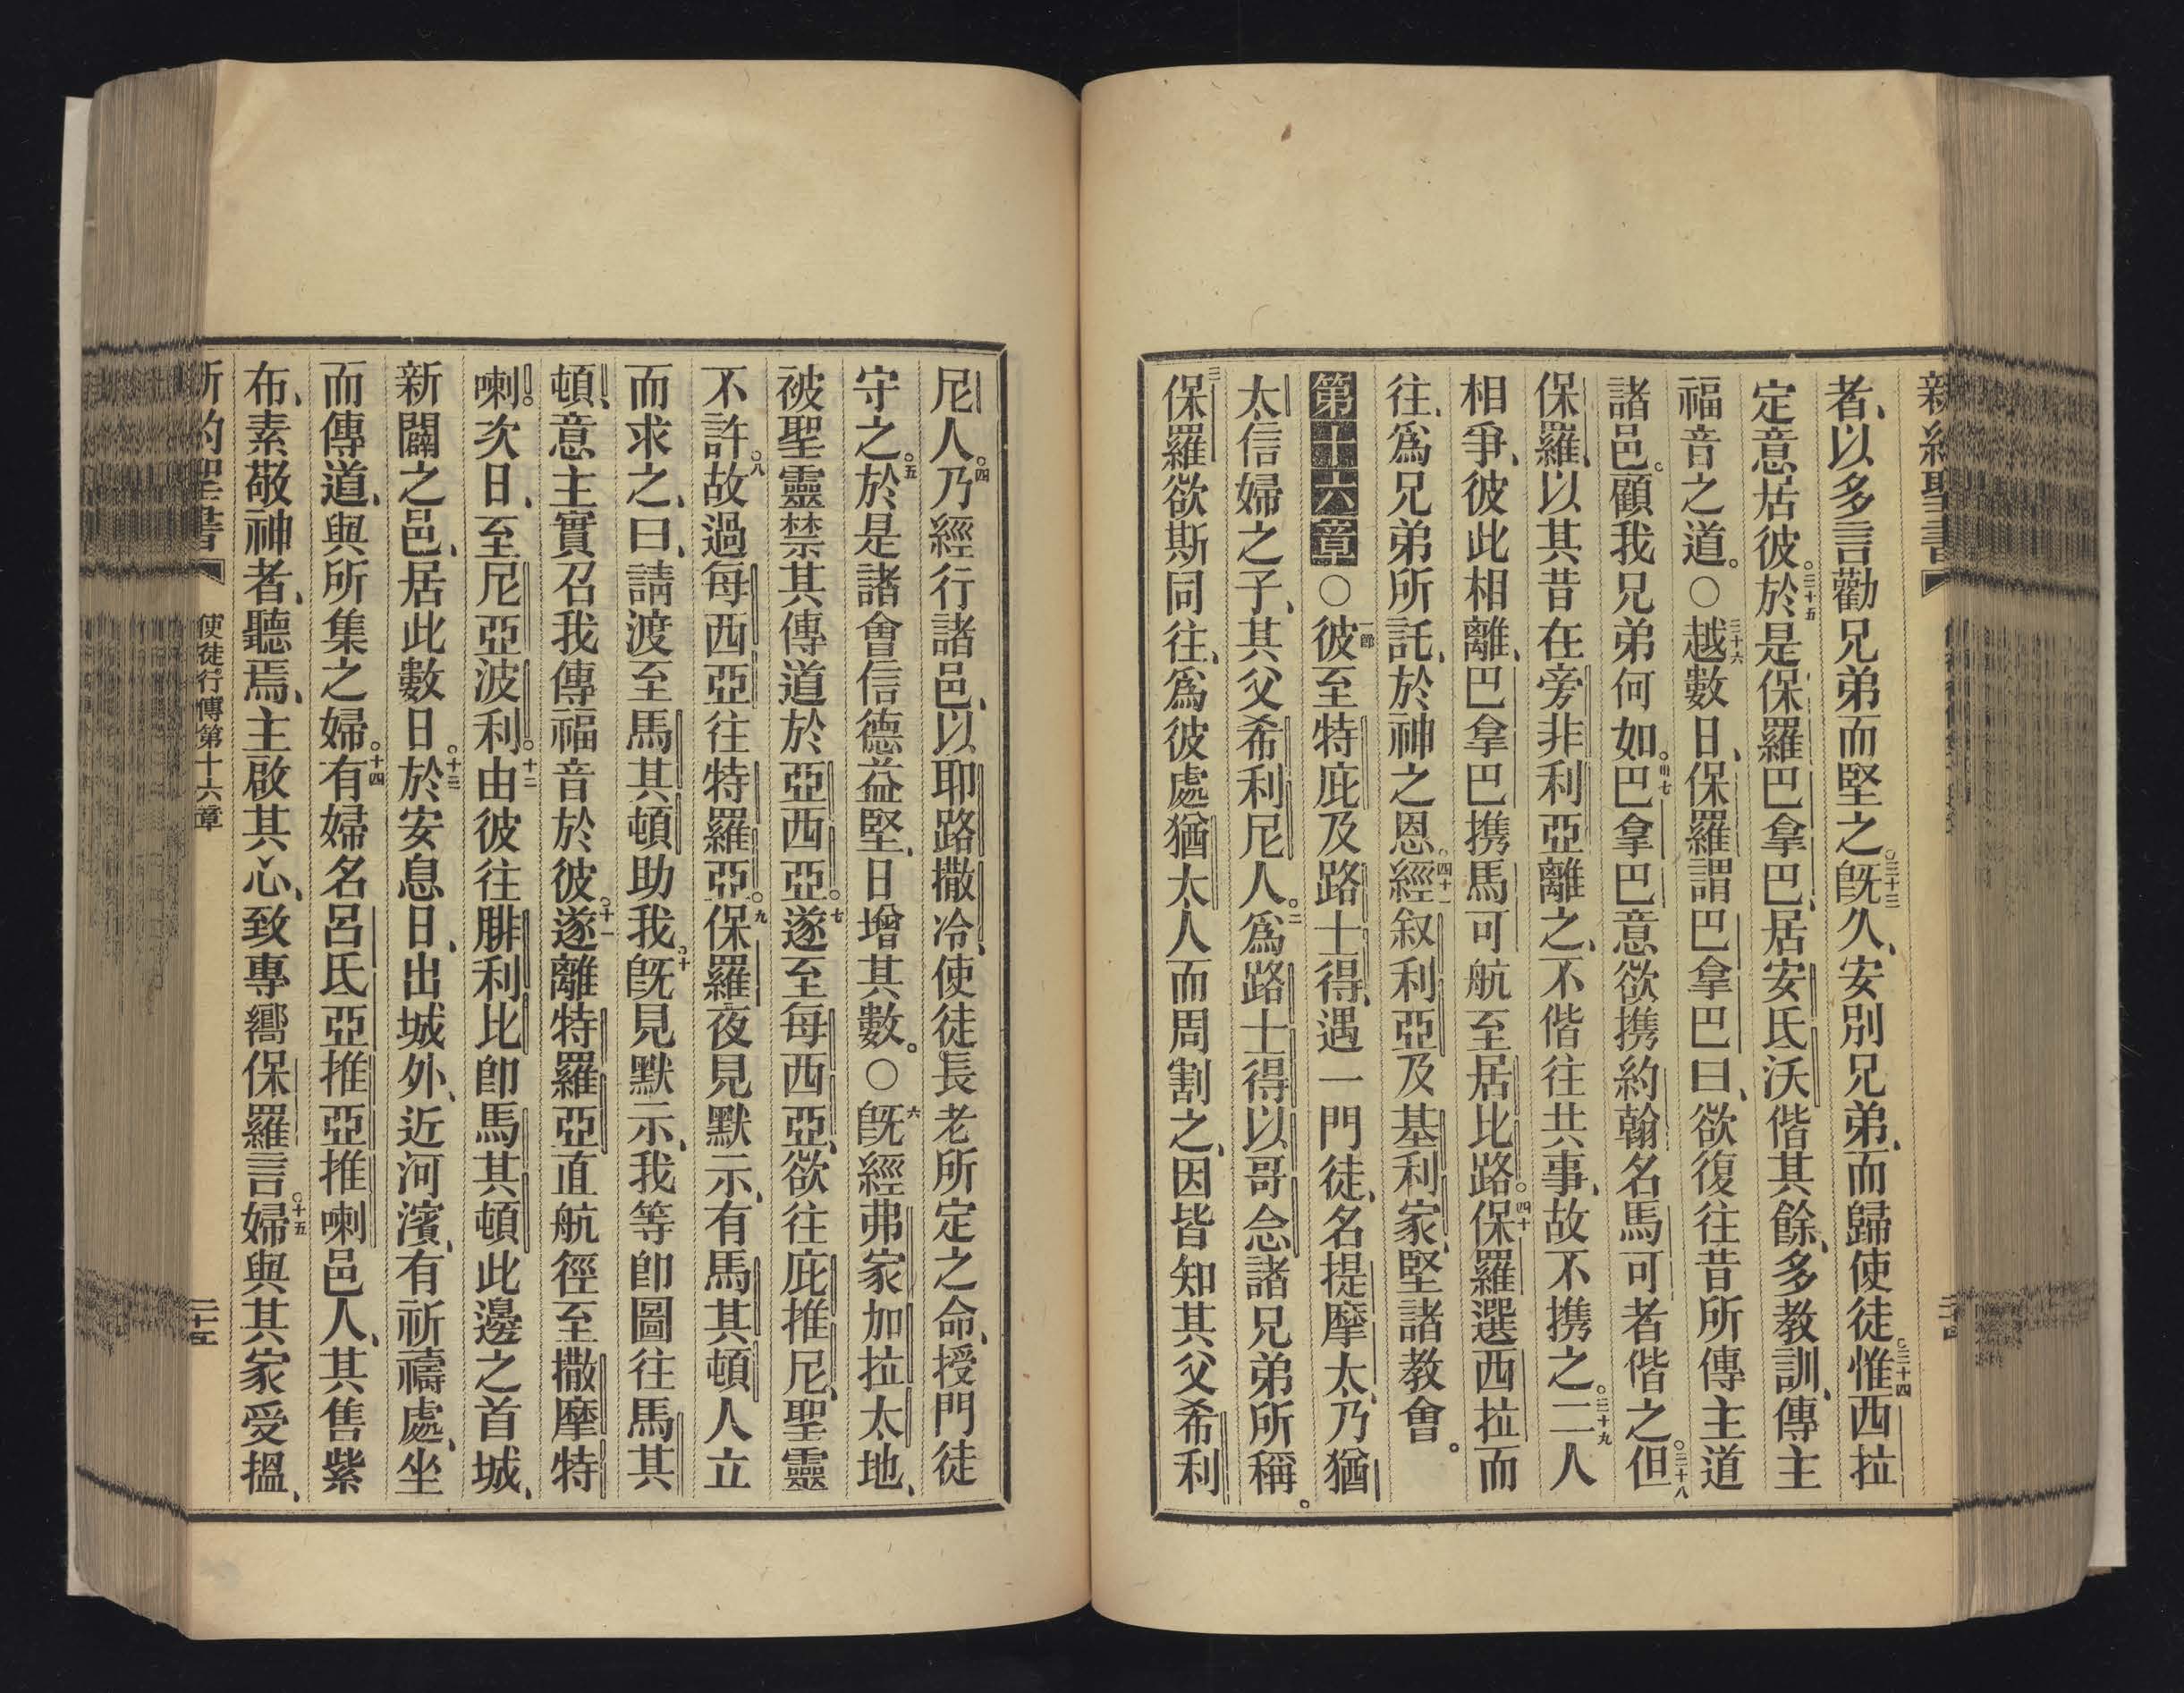 新約聖書
者、以多言勸兄弟而堅之。三十三旣久、安別兄弟、而歸使徒。三十四惟西拉
定意居彼。三十五於是保羅巴拿巴、居安氐沃偕其餘、多教訓、傳主
福音之道。○三十六越數日、保羅謂巴拿巴曰、欲復往昔所傳主道
諸邑。顧我兄弟何如。卅七巴拿巴意欲携約翰名馬可者偕之。三十八但
保羅、以其昔在旁非利亞離之、不偕往共事、故不携之。三十九二人
相爭、彼此相離、巴拿巴携馬可航至居比路。四十保羅選西拉而
往、爲兄弟所託、於神之恩。四十一經叙利亞及基利家、堅諸教會。
第十六章○一節彼至特庇及路士得、遇一門徒、名提摩太、乃猶
太信婦之子、其父希利尼人。二爲路士得以哥念諸兄弟所稱。
三保羅欲斯同往、爲彼處猶太人而周割之、因皆知其父希利
二十四
尼人。四乃經行諸邑、以耶路撒冷、使徒長老所定之命、授門徒
守之。五於是諸會信德益堅、日增其數。○六旣經弗家加拉太地、
被聖靈禁其傳道於亞西亞。七遂至每西亞、欲往庇推尼、聖靈
不許。八故過每西亞往特羅亞。九保羅夜見默示、有馬其頓人立
而求之、曰、請渡至馬其頓助我。十旣見默示、我等卽圖往馬其
頓、意主實召我傳福音於彼。十一遂離特羅亞直航徑至撒摩特
喇。次日、至尼亞波利。十二由彼往腓利比卽馬其頓此邊之首城、
新闢之邑、居此數日。十三於安息日、出城外、近河濱、有祈禱處、坐
而傳道、與所集之婦。十四有婦名呂氐亞推亞推喇邑人、其售紫
布、素敬神者、聽焉、主啟其心、致專嚮保羅言。十五婦與其家受搵、
新約聖書 使徒行傳第十六章 二十五